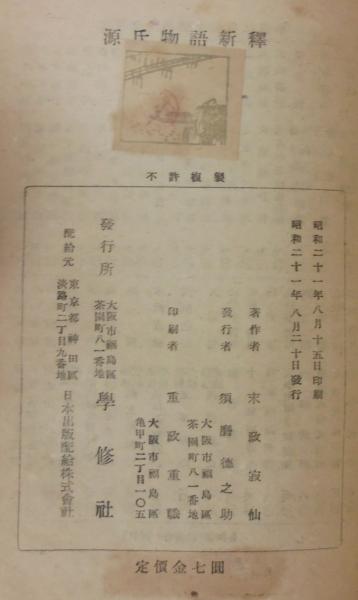 源氏物語新釋
不許複製
昭和二十一年八月十五日印刷
昭和二十一年八月二十日發行
著作者 末政寂仙
大阪市福島區
茶園町八一番地
發行者 須磨德之助
大阪市福島區
亀甲町二丁目一〇五
印刷者 重政重
大阪市福島區
茶園町八一番地
發行所 學修社
東京都神田區
淡路町二丁目九番地
配給元 日本出版配給株式會社
定價金七圓